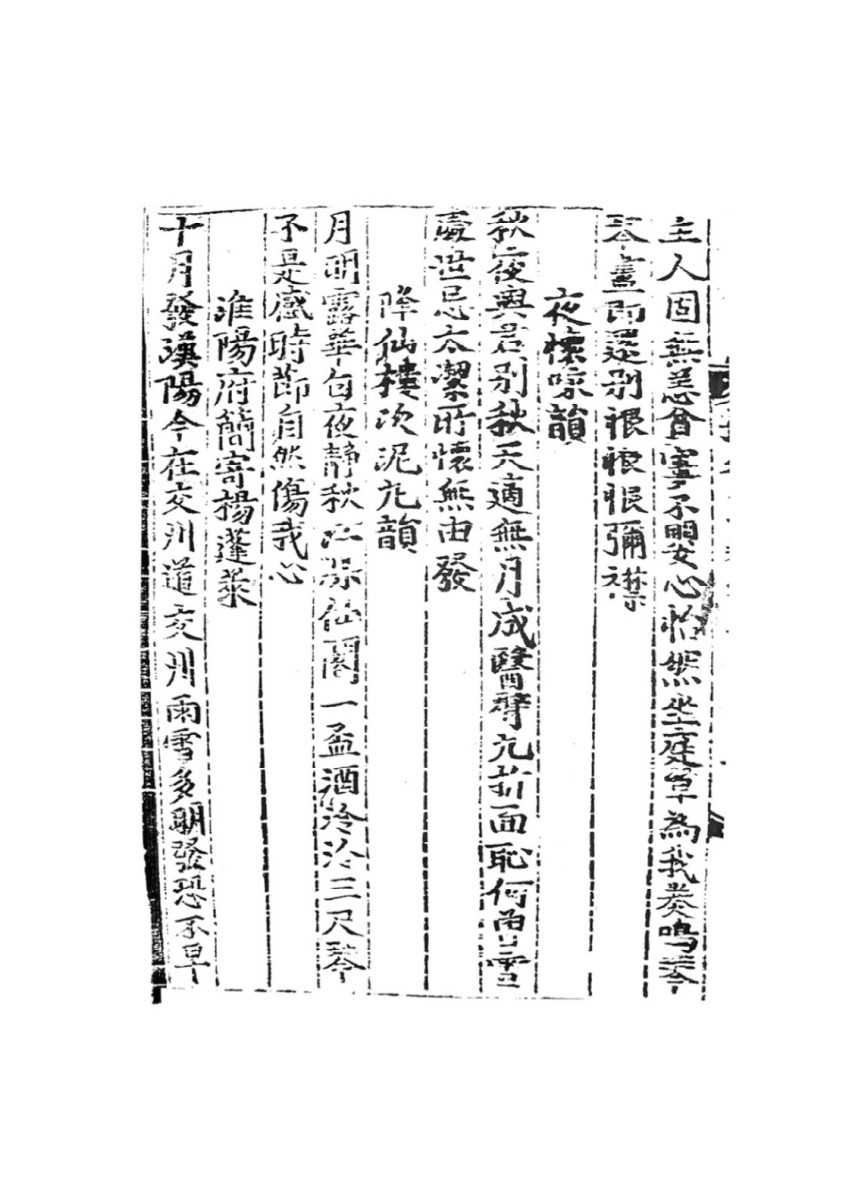 主人固無恙曾窶不嬰心怡然坐庭草為我奏鳴琴
琴盡而還別恨恨恨彌襟
夜懷韻
秋夜與君別秋天適無月成醫臂亢折面恥何曾雪
處世忌太潔所懷無由發
降仙樓次泥亢韻
月明露華白夜静秋江深仙閣一盃酒泠泠三尺琴
不是感時節自然傷我心
淮陽府簡寄楊蓬萊
十月發漢陽今在交州道交州雨雪多明發恐不早